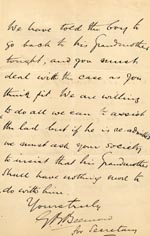 We have told the boy to
go back to his Grandmother
tonight, and you must
deal with the case as you
think fit. We are willing
to do all we can to assist
the lad but if he is
we must ask your Society
to insist that his Grandmother
shall have nothing more to
do with him.
Yours truly
for Secretary